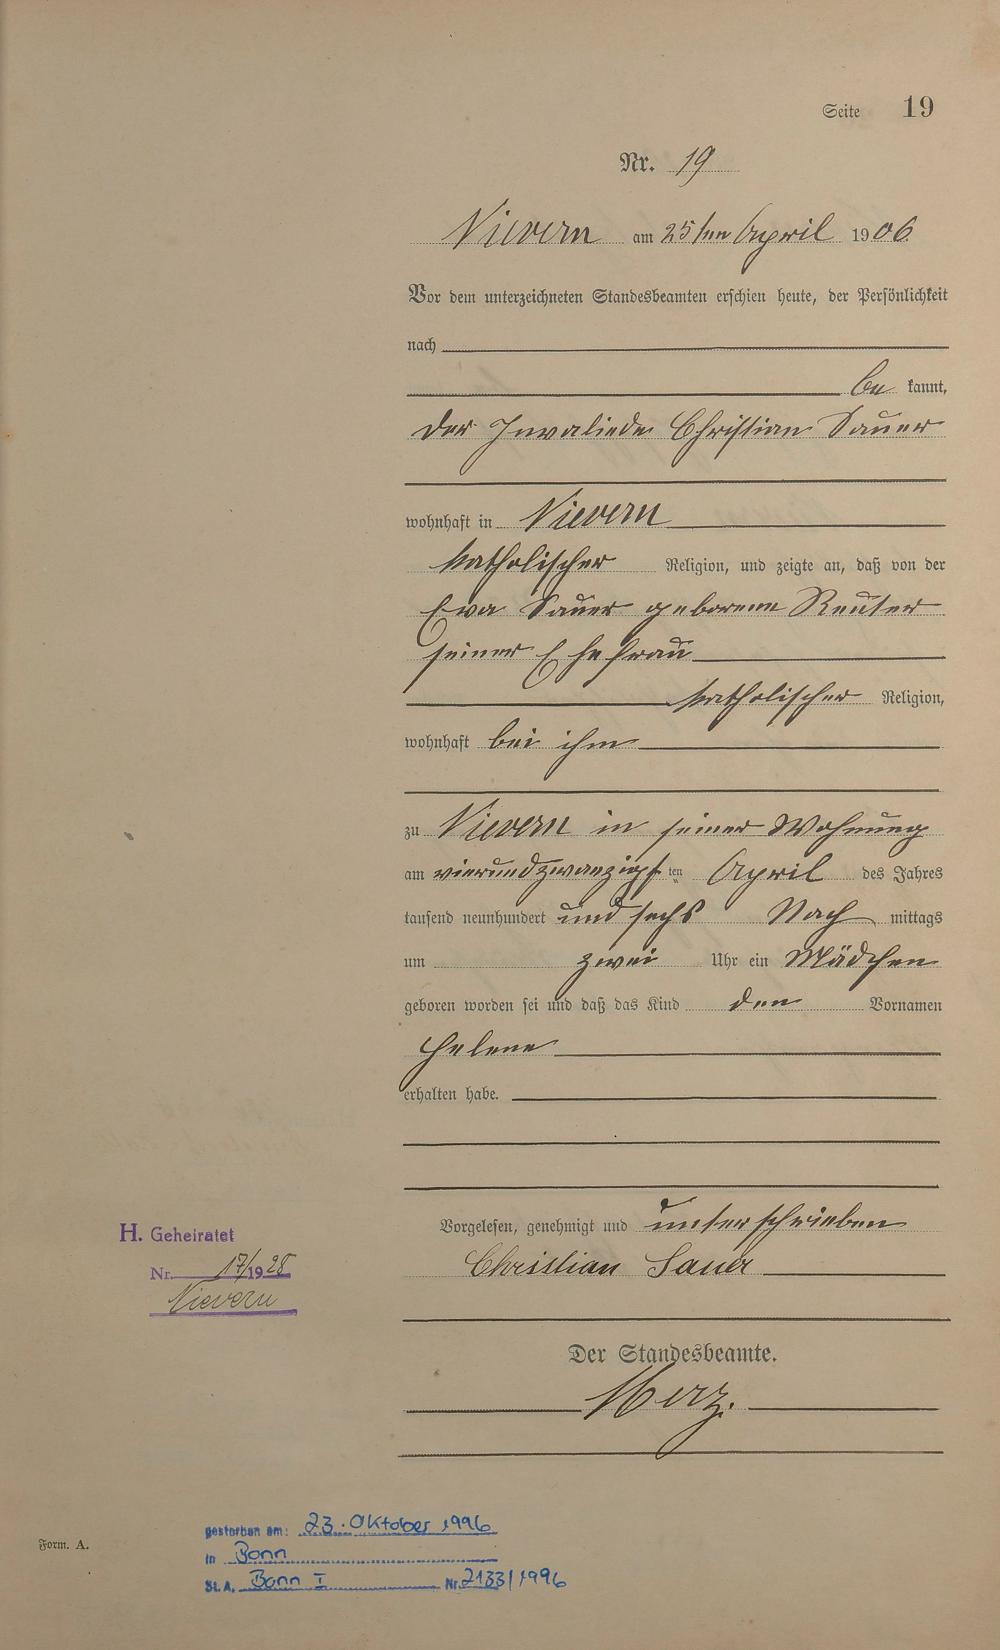 Seite 19
Nr. 19
Nievern am 25ten April 1906
Vor dem unterzeichneten Standesbeamten erschien heute, der Persönlichkeit
nach
be kannt,
der Invaliede Christian Sauer
wohnhaft in Nievern
katholischer Religion, und zeigte an, daß von der
Eva Sauer geborene Reuter
seiner Ehefrau
katholischer Religion,
wohnhaft bei ihm
zu Nievern in seiner Wohnung
am vierundzwanzigst ten April des Jahres
tausend neunhundert und sechs Nach mittags
um zwei Uhr ein Mädchen
geboren worden sei und daß das Kind den Vornamen
Helene
erhalten habe.
Vorgelesen, genehmigt und unterschrieben
Christian Sauer
Der Standesbeamte.
Merz.
H. Geheiratet
Nr. 17/1928
Nievern
gestorben am: 23. Oktober 1996
in Bonn
St. A. Bonn I Nr. 2133/1996
Form. A.